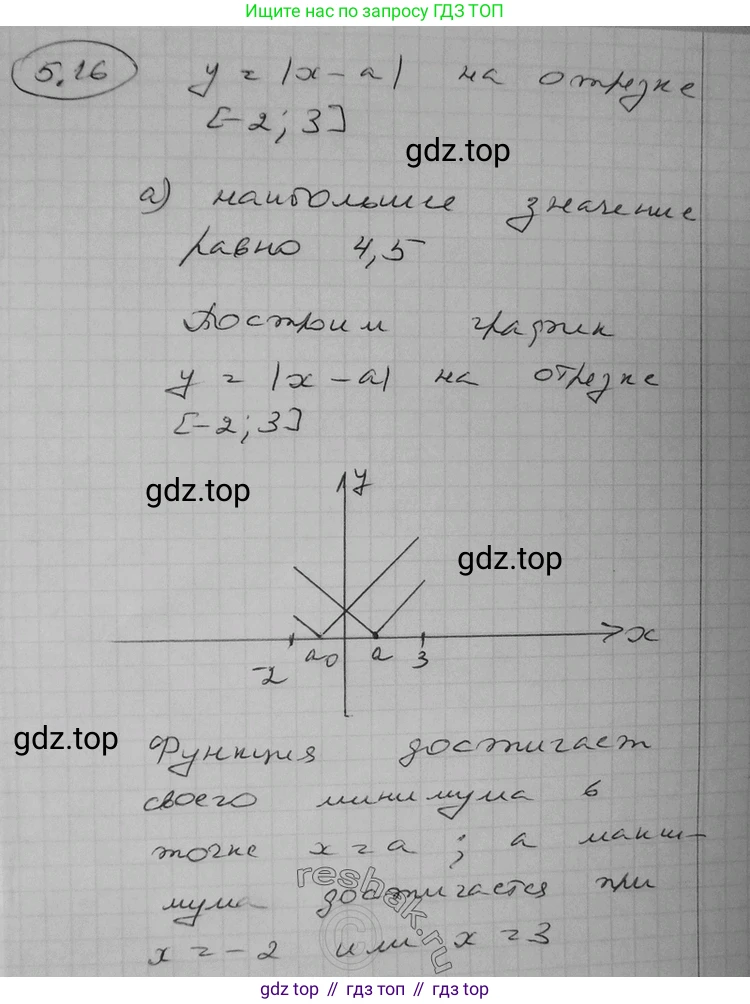 Ищите нас по запросу ГДЗ ТОП
5.26 y = |x – a| на отрезке
[–2; 3]
gdz.top
а) наибольшее значение
равно 4,5
Построим график
y = |x – a| на отрезке
[–2; 3]
y
gdz.top
gdz.top
x
-2 a 0 a 3
gdz.top
Функция достигает
своего минимума в
точке x = a ; а макси-
мума достигается при
x = –2 или x = 3
reshak.ru
gdz.top // гдз топ // gdz.top